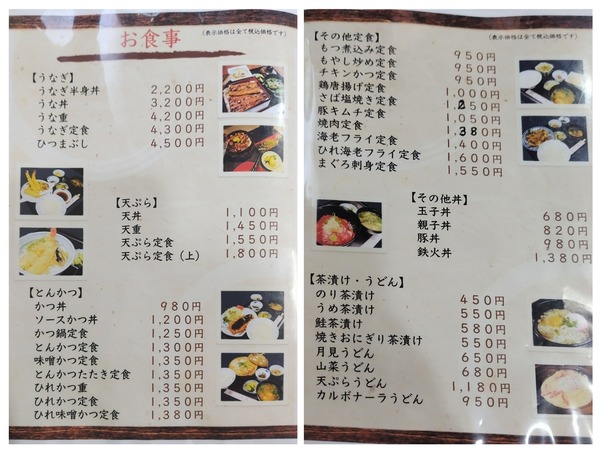 お食事
(表示価格は全て税込価格です)
【うなぎ】
うなぎ半身丼 2,200円
うな丼 3,200円
うな重 4,200円
うなぎ定食 4,300円
ひつまぶし 4,500円
【天ぷら】
天丼 1,100円
天重 1,450円
天ぷら定食 1,550円
天ぷら定食(上) 1,800円
【とんかつ】
かつ丼 980円
ソースかつ丼 1,200円
かつ鍋定食 1,250円
とんかつ定食 1,300円
味噌かつ定食 1,350円
とんかつたたき定食 1,350円
ひれかつ重 1,350円
ひれかつ定食 1,350円
ひれ味噌かつ定食 1,380円
(表示価格は全て税込価格です)
【その他定食】
もつ煮込み定食 950円
もやし炒め定食 950円
チキンかつ定食 950円
鶏唐揚げ定食 1,000円
さば塩焼き定食 1,250円
豚キムチ定食 1,050円
焼肉定食 1,380円
海老フライ定食 1,400円
ひれ海老フライ定食 1,600円
まぐろ刺身定食 1,550円
【その他丼】
玉子丼 680円
親子丼 820円
豚丼 980円
鉄火丼 1,380円
【茶漬け・うどん】
のり茶漬け 450円
うめ茶漬け 550円
鮭茶漬け 580円
焼きおにぎり茶漬け 550円
月見うどん 650円
山菜うどん 680円
天ぷらうどん 1,180円
カルボナーラうどん 950円